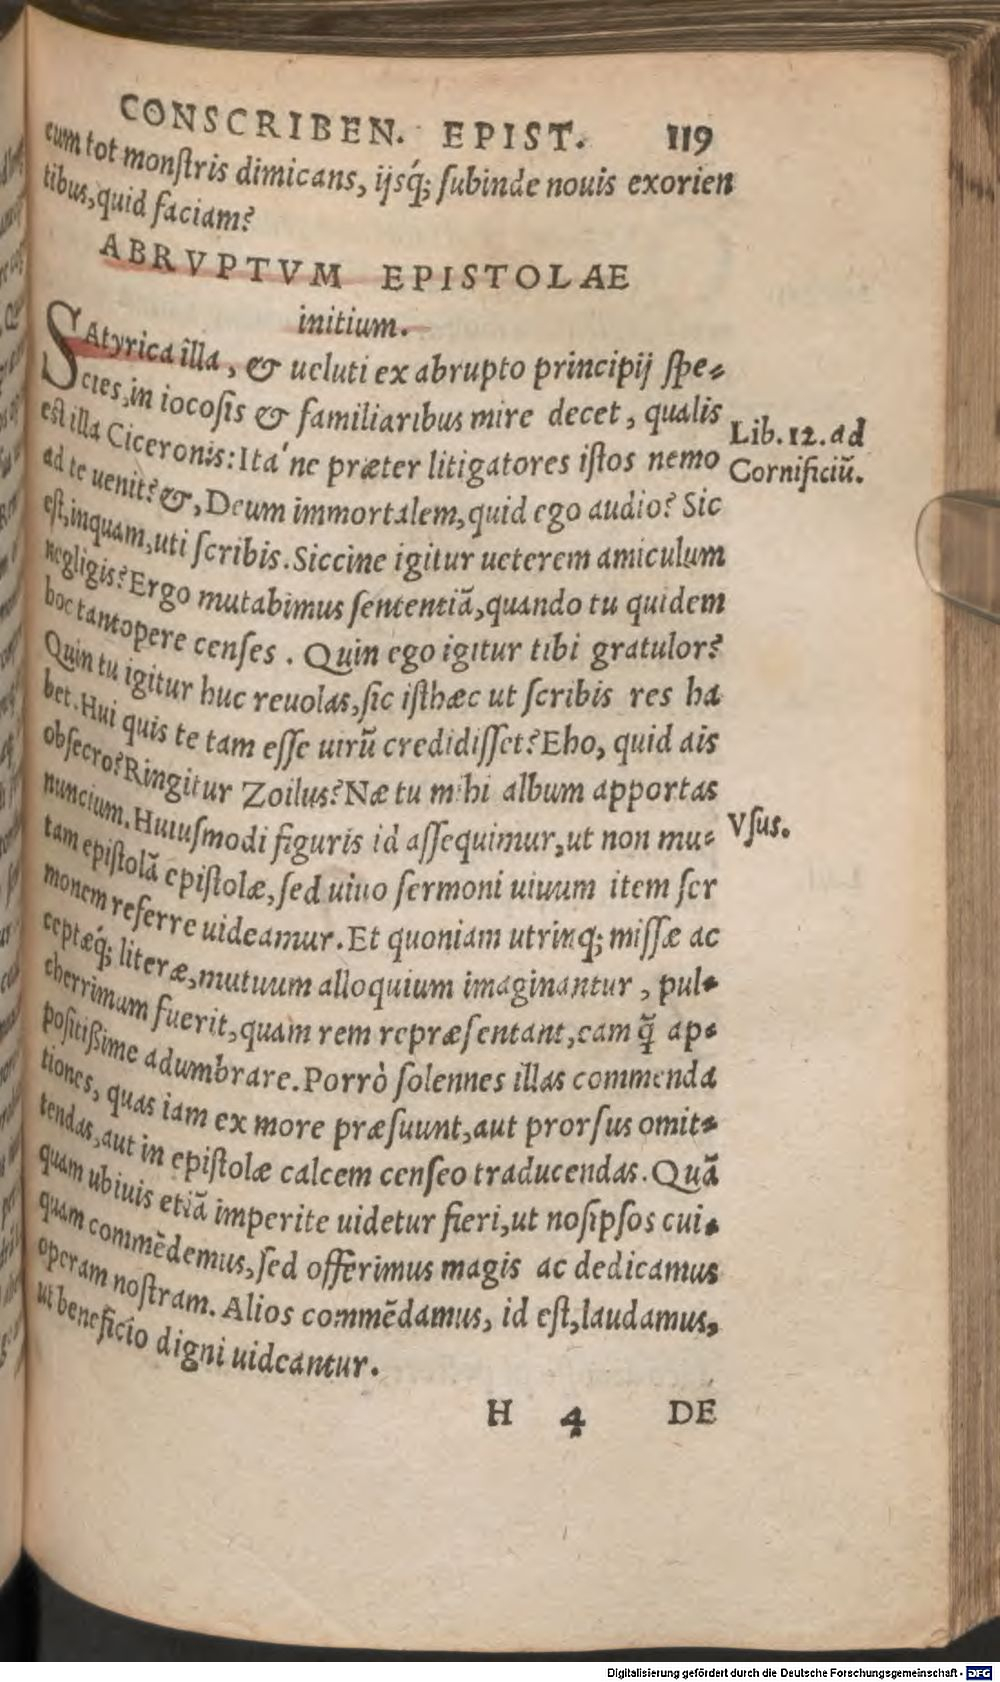 CONSCRIBEN. EPIST. 119
cum tot monſtris dimicans, ijsq́; ſubinde nouis exorien
tibus, quid faciam?
ABRVPTVM EPISTOLAE
initium.
SAtyrica illa, & ueluti ex abrupto principij ſpe-
cies, in iocoſis & familiaribus mire decet, qualis
eſt illa Ciceronis: Ita'ne præter litigatores iſtos nemo
Lib. 12. ad
Cornificiũ.
ad te uenit? &, Deum immortalem, quid ego audio? Sic
eſt, inquam, uti ſcribis. Siccine igitur ueterem amiculum
negligis? Ergo mutabimus ſententiã, quando tu quidem
hoc tantopere cenſes. Quin ego igitur tibi gratulor?
Quin tu igitur huc reuolas, ſic iſthæc ut ſcribis res ha
bet. Hui quis te tam eſſe uirũ credidiſſet? Eho, quid ais
obſecro? Ringitur Zoilus? Næ tu mihi album apportas
nuncium. Huiuſmodi figuris id aſſequimur, ut non mu-
Vſus.
tam epiſtolã epiſtolæ, ſed uiuo ſermoni uiuum item ſer
monem referre uideamur. Et quoniam utrinq; miſſæ ac
ceptæq́; literæ, mutuum alloquium imaginantur, pul-
cherrimum fuerit, quam rem repræſentant, eam q̃ ap-
poſitißime adumbrare. Porrò ſolennes illas commenda
tiones, quas iam ex more præſuunt, aut prorſus omit-
tendas, aut in epiſtolæ calcem cenſeo traducendas. Quã
quam ubiuis etiã imperite uidetur fieri, ut noſipſos cui-
quam commẽdemus, ſed offerimus magis ac dedicamus
operam noſtram. Alios commẽdamus, id eſt, laudamus,
ut beneficio digni uideantur.
H 4 DE
Digitalisierung gefördert durch die Deutsche Forschungsgemeinschaft - DFG